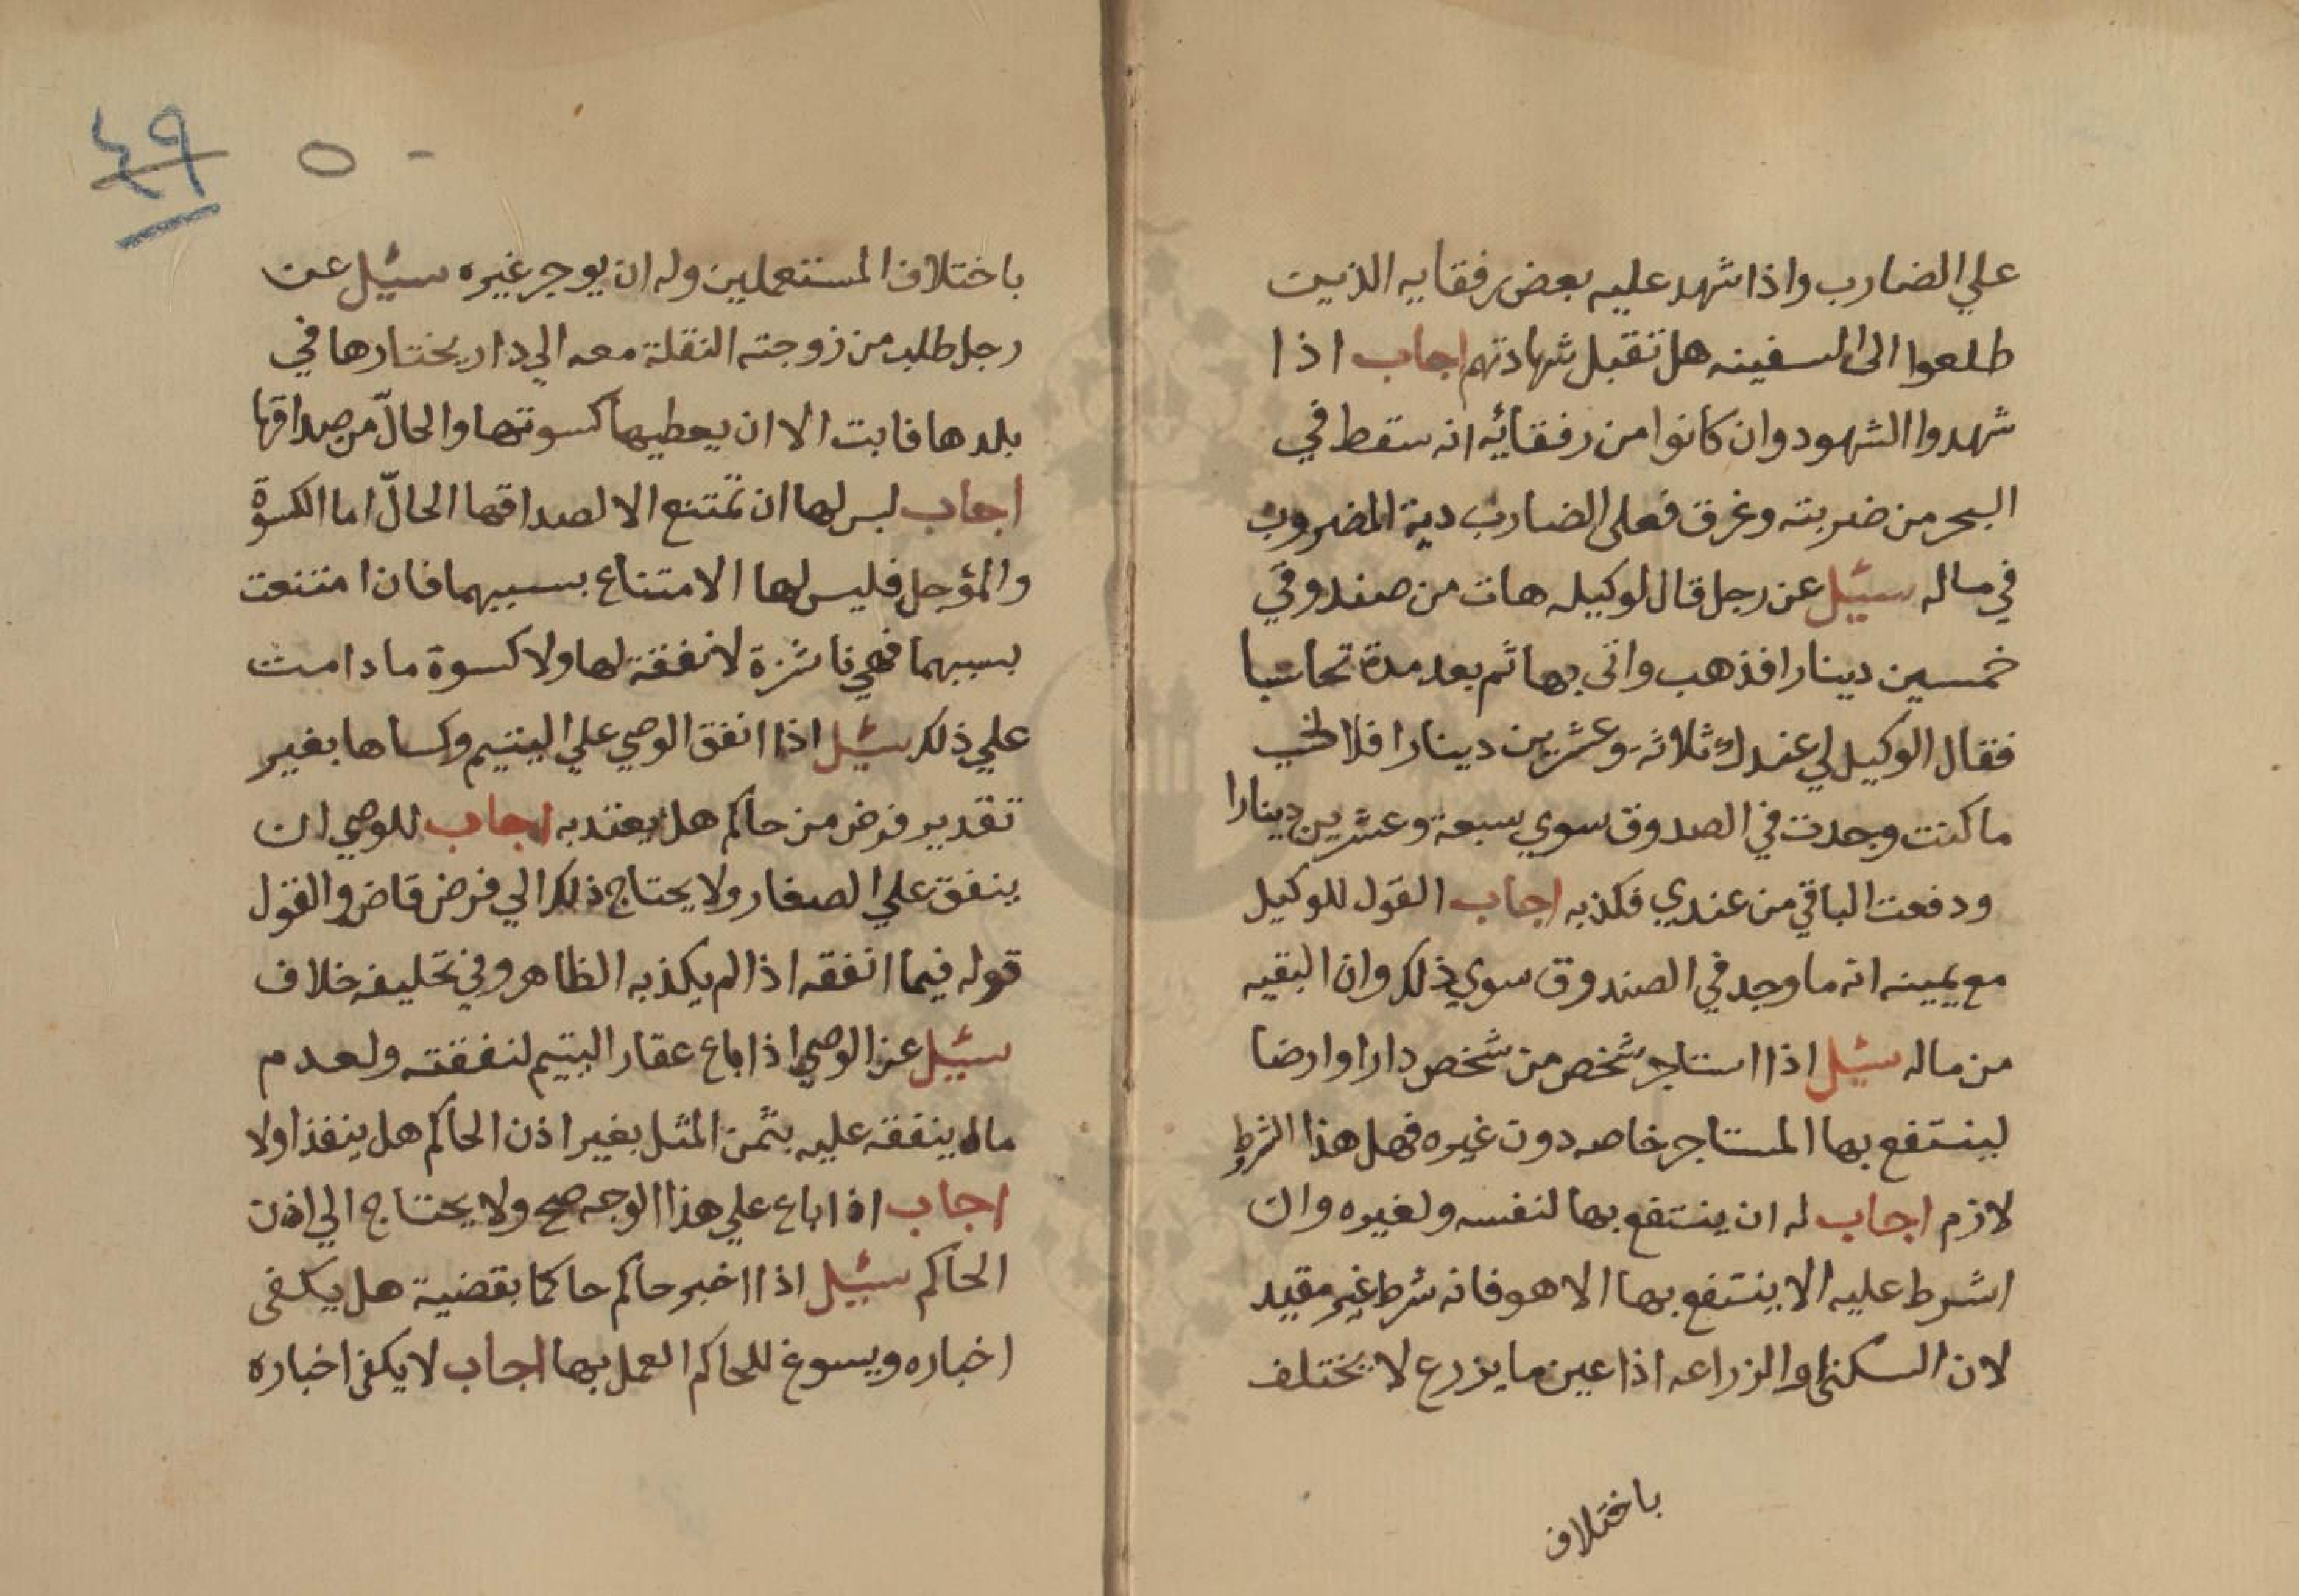 علي الضارب واذا شهد عليه بعض رفقايه الذين
طلعوا الى السفينه هل تقبل شهادتهم اجاب اذا
شهدوا الشهود وان كانوا من رفقائه انه سقط في
البحر من ضربته وغرق فعلى الضارب دية المضروب
في ماله سئيل عن رجل قال لوكيله هات من صندوقي
خمسين دينارا فذهب واتى بها ثم بعد مدة تحاسبا
فقال الوكيل لي عندك ثلاثة وعشرين دينارا فلا
ما كنت وجدت في الصدوق سوي سبعة وعشرين دينارا
ودفعت الباقي من عندي فكذبه اجاب القول للوكيل
مع يمينه انه ما وجد في الصندوق سوي ذلك وان البقيه
من ماله سئيل اذا استاجر شخص من شخص دارا وارضا
لينتفع بها المستاجر خاصه دون غيره فهل هذا الشرط
لازم اجاب له ان ينتفع بها لنفسه ولغيره وان
اشرط عليه الا ينتفع بها الا هو فانه شرط غير مقيد
لان السكنى والزراعه اذا عين ما يزرع لا يختلف
باختلاف
٤٩
٥٠
باختلاف المستعملين وله ان يوجر غيره سئيل عن
رجل طلب من زوجته النقلة معه الي دار يختارها في
بلدها فابت الا ان يعطيها كسوتها والحالّ من صداقها
اجاب ليس لها ان تمتنع الا لصداقها الحالّ اما الكسوة
والمؤجل فليس لها الامتناع بسببهما فان امتنعت
بسببهما فهي ناشزة لا نفقة لها ولا كسوة ما دامت
علي ذلك سئيل اذا انفق الوصي علي اليتيم وكساها بغير
تقدير فرض من حاكم هل يعتد به اجاب للوصي ان
ينفق علي الصغار ولا يحتاج ذلك الي فرض قاض والقول
قوله فيما انفقه اذا لم يكذبه الظاهر وفي تحليفه خلاف
سئيل عن الوصي اذا باع عقار اليتيم لنفقته ولعدم
ماله ينفقه عليه بثمن المثل بغير اذن الحاكم هل ينفذ اولا
اجاب اذا باع علي هذا الوجه صح ولا يحتاج الي اذن
الحاكم سئيل اذا اخبر حاكم حاكما بقضية هل يكفى
اخباره ويسوغ للحاكم العمل بها اجاب لا يكفى اخباره